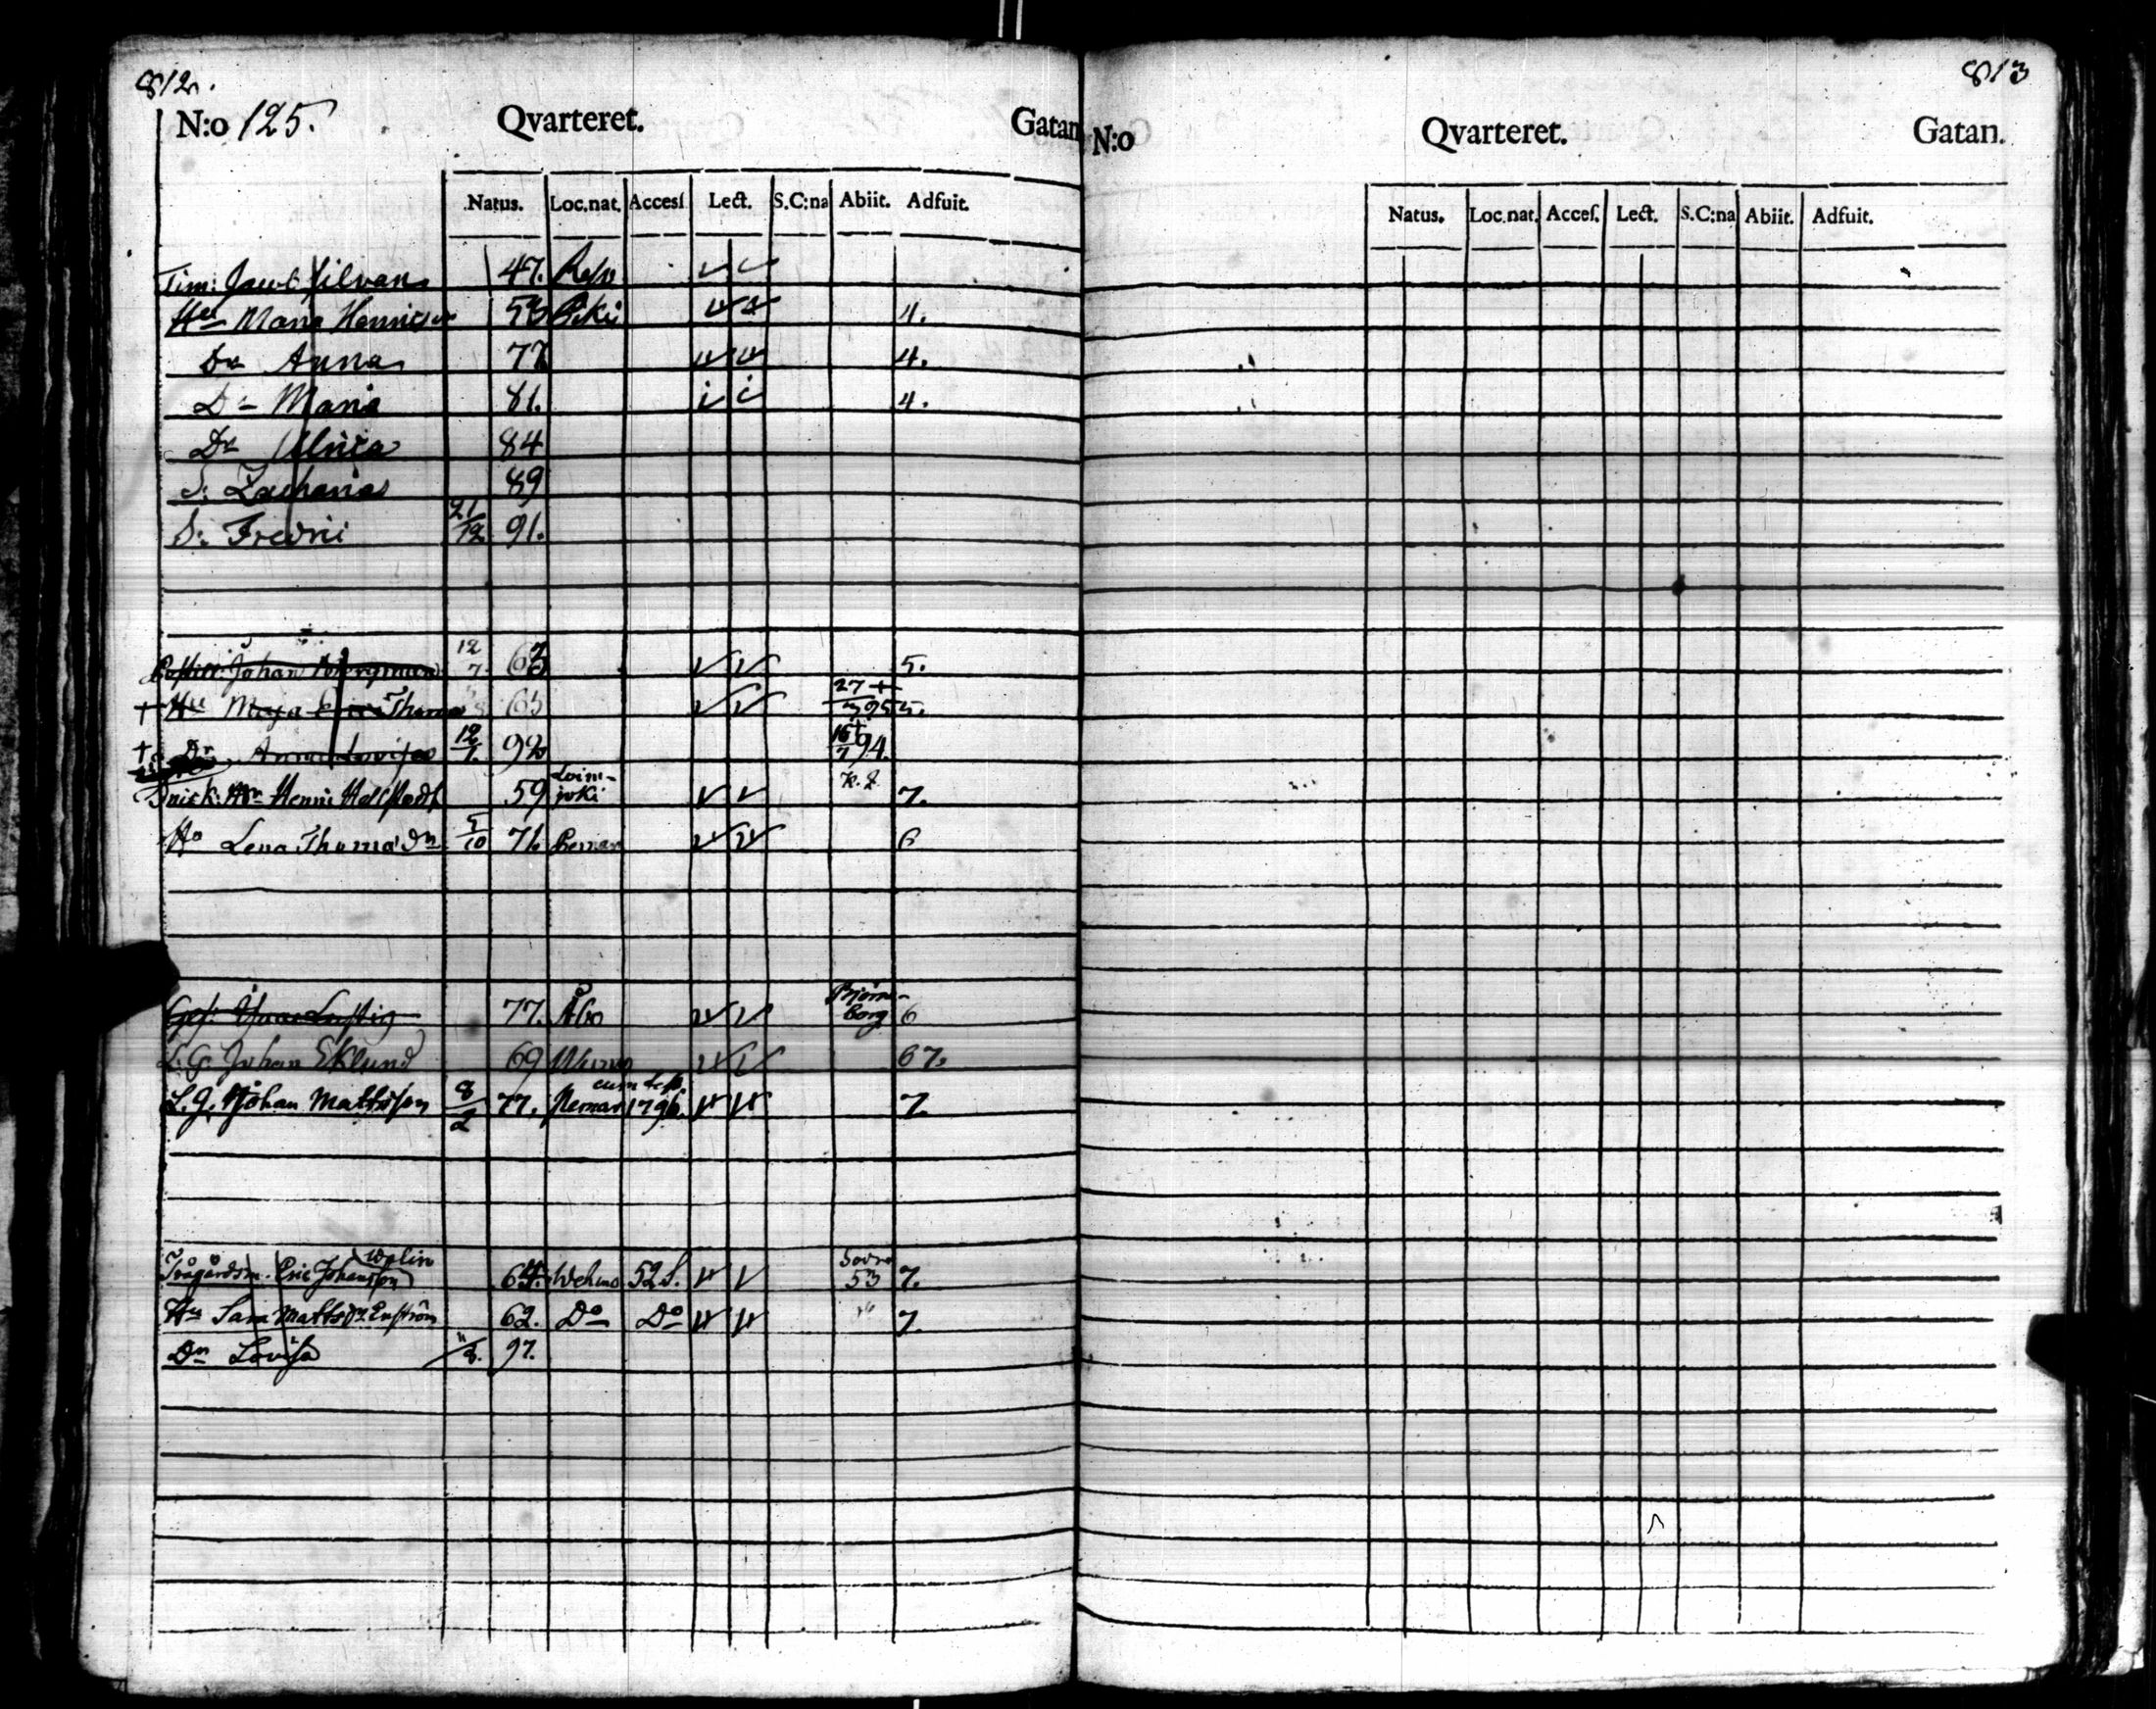 812.
N:o 125. Qvarteret. Gatan
Natus. Loc.nat. Accesſ. Lect. S.C:na Abiit. Adfuit.
Tim: Jacob Silvan 47. Reso
Hu Maria Henricsdr 53 Piki 4.
Dr Anna 77 4.
Dr Maria 81. i i 4.
Dr Ulrica 84
S: Zacharias 89
S: Fredric 21/12 91.
Johan Bergman 12/7 5.
+ Hu Maja Thoma 65 27/3 95 + 5.
+ Dr Anna Lovisa 12/1. 92 16/7 94. +
Snick: Henric Hellstedt 59 Loimjoki k. 2 7.
Ho Lena Thomas Dn 5/10 71. Pemar 6
Ges: Lustig 77. Åbo Björneborg 6
L. G. Johan Eklund 69 67.
L. G. Johan Mattsson 8/2 77. Nemar cum test. 1796. 7.
Trägårdsm. Eric Johansson Welin 64. Wehmo 52 S. 53 7.
Hu Sara Matts Dr Enström 62. Do Do " 7.
Dn Lovisa "/8. 97.
813
N:o Qvarteret. Gatan.
Natus. Loc.nat. Acceſ. Lect. S.C:na Abiit. Adfuit.